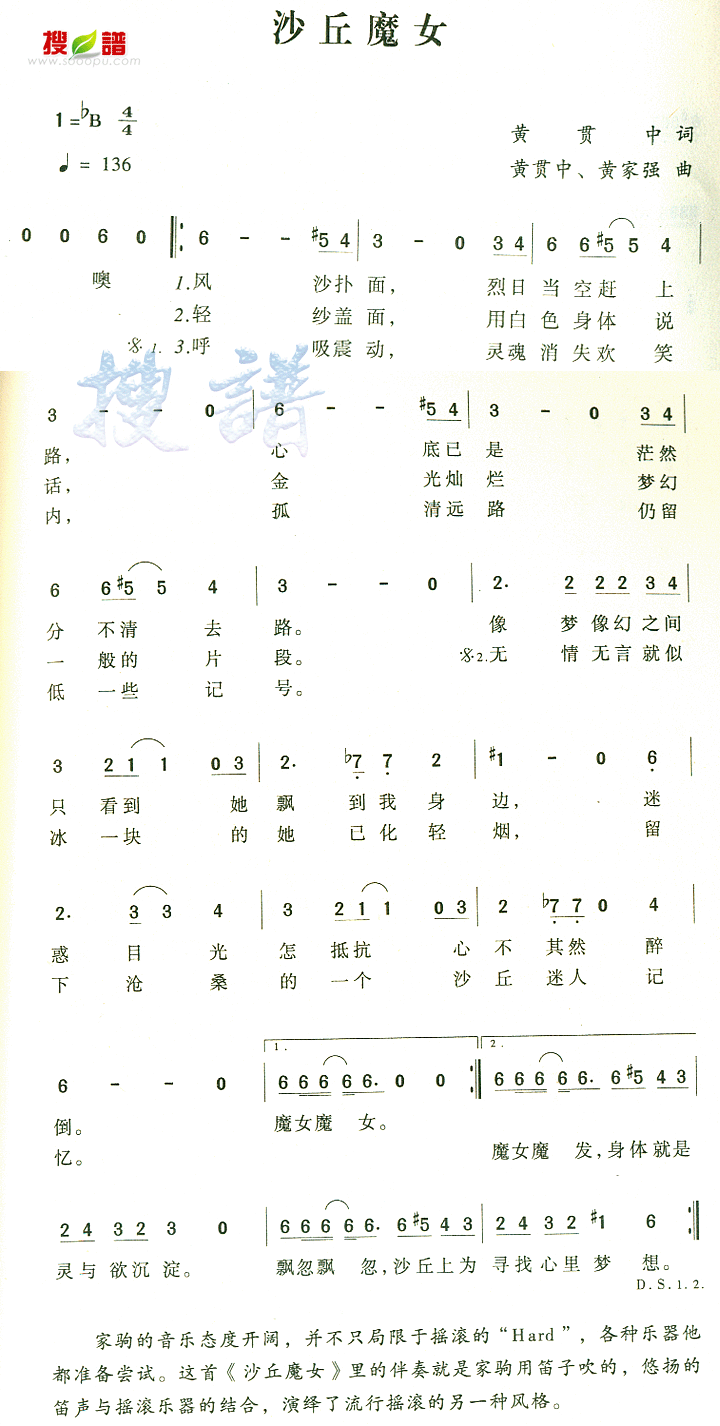 沙丘魔女
搜譜
www.sooopu.com
1=♭B 4/4
♩= 136
黄贯中 词
黄贯中、黄家强 曲
0 0 6 0 6 - - #5 4 3 - 0 3 4 6 6 #5 5 4
噢 1.风 沙扑面, 烈日当空赶上
2.轻 纱盖面, 用白色身体说
𝄋1. 3.呼 吸震动, 灵魂消失欢笑
搜譜
3 - - 0 6 - - #5 4 3 - 0 3 4
路, 心 底已是 茫然
话, 金 光灿烂 梦幻
内, 孤 清远路 仍留
6 6 #5 5 4 3 - - 0 2. 2 2 2 3 4
分不清去路。 像梦像幻之间
一般的片段。 𝄋2.无情无言就似
低一些记号。
3 2 1 1 0 3 2. ♭7 7 2 #1 - 0 6
只看到 她飘到我身边, 迷
冰一块 的她已化轻烟, 留
2. 3 3 4 3 2 1 1 0 3 2 ♭7 7 0 4
惑目光怎抵抗 心不其然醉
下沧桑的一个 沙丘迷人记
1. 2.
6 - - 0 6 6 6 6 6. 0 0 6 6 6 6 6. 6 #5 4 3
倒。 魔女魔 女。
忆。 魔女魔 发,身体就是
2 4 3 2 3 0 6 6 6 6 6. 6 #5 4 3 2 4 3 2 #1 6
灵与欲沉淀。 飘忽飘 忽,沙丘上为寻找心里梦想。
D.S.1.2.
家驹的音乐态度开阔，并不只局限于摇滚的“Hard”，各种乐器他
都准备尝试。这首《沙丘魔女》里的伴奏就是家驹用笛子吹的，悠扬的
笛声与摇滚乐器的结合，演绎了流行摇滚的另一种风格。